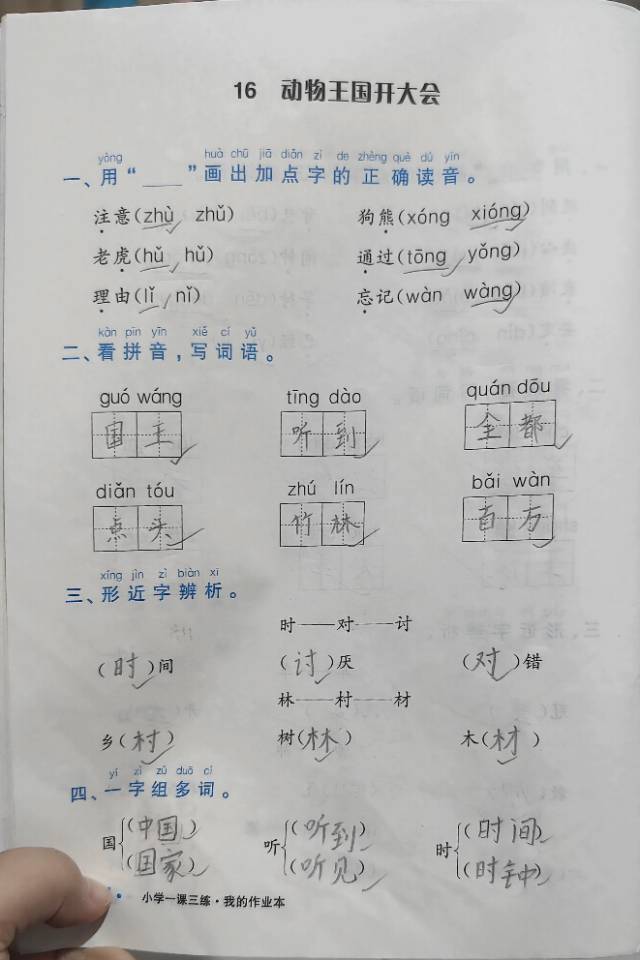 16 动物王国开大会
yòng huà chū jiā diǎn zì de zhèng què dú yīn
一、用“____”画出加点字的正确读音。
注意(zhù zhǔ) 狗熊(xóng xióng)
老虎(hǔ hù) 通过(tōng yǒng)
理由(lǐ nǐ) 忘记(wàn wàng)
kàn pīn yīn xiě cí yǔ
二、看拼音,写词语。
guó wáng tīng dào quán dōu
国王 听到 全都
diǎn tóu zhú lín bǎi wàn
点头 竹林 百万
xíng jìn zì biàn xī
三、形近字辨析。
时——对——讨
(时)间 (讨)厌 (对)错
林——村——材
乡(村) 树(林) 木(材)
yí zì zǔ duō cí
四、一字组多词。
国{(中国) 听{(听到) 时{(时间)
(国家) (听见) (时钟)
小学一课三练·我的作业本